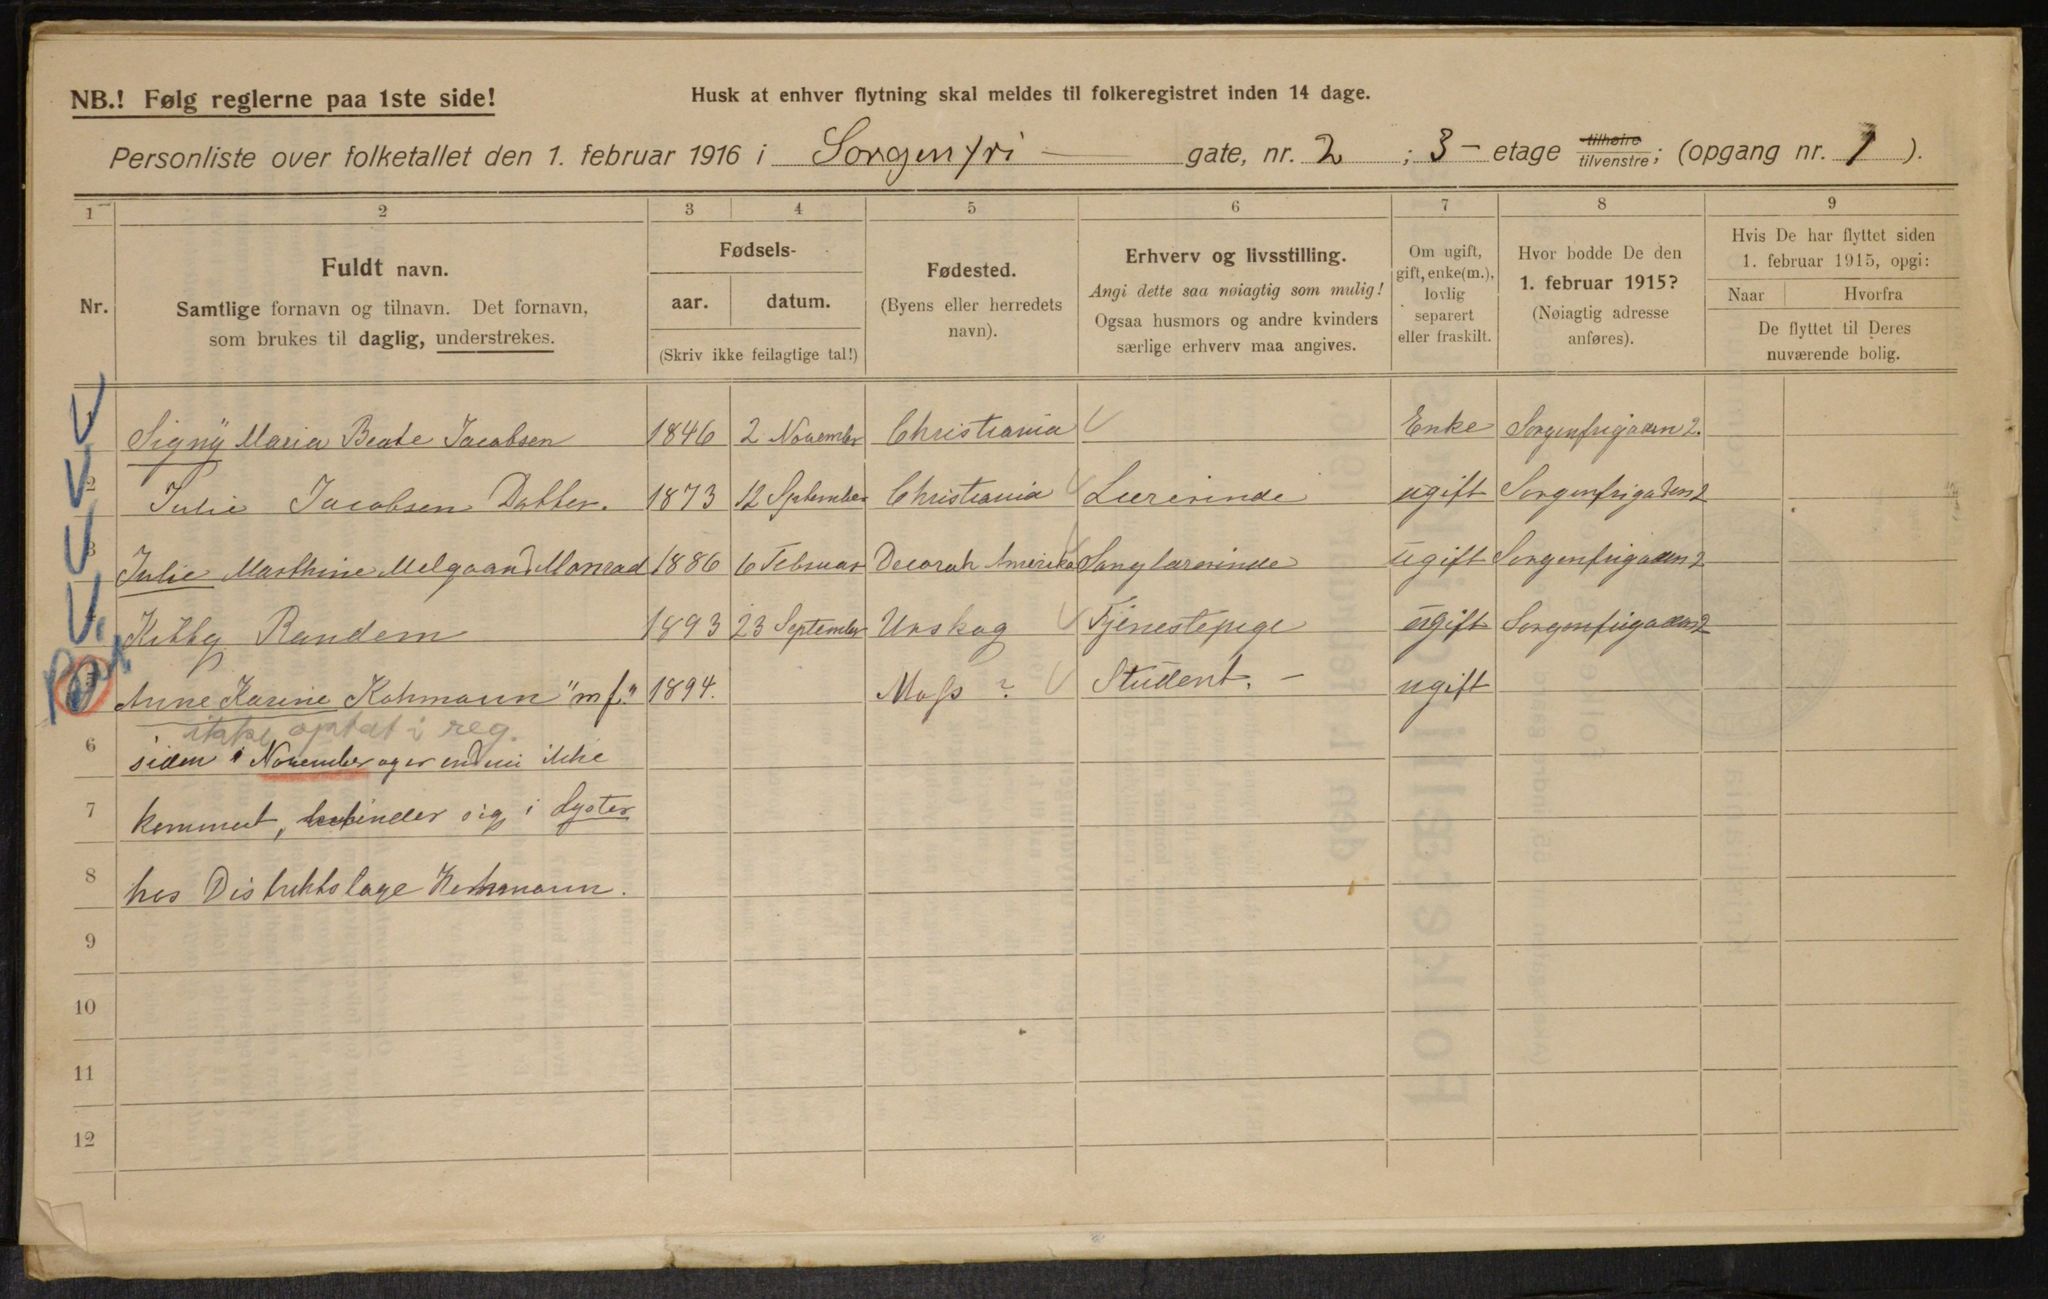 NB.! Følg reglerne paa 1ste side!
Husk at enhver flytning skal meldes til folkeregistret inden 14 dage.
Personliste over folketallet den 1. februar 1916 i Sorgenfri gate, nr. 2 ; 3 etage tilhøire tilvenstre; (opgang nr. 1 ).
1 2 3 4 5 6 7 8 9
Nr.
Fuldt navn.
Samtlige fornavn og tilnavn. Det fornavn,
som brukes til daglig, understrekes.
Fødsels-
aar. datum.
(Skriv ikke feilagtige tal!)
Fødested.
(Byens eller herredets
navn).
Erhverv og livsstilling.
Angi dette saa nøiagtig som mulig!
Ogsaa husmors og andre kvinders
særlige erhverv maa angives.
Om ugift,
gift, enke(m.),
lovlig
separert
eller fraskilt.
Hvor bodde De den
1. februar 1915?
(Nøiagtig adresse
anføres).
Hvis De har flyttet siden
1. februar 1915, opgi:
Naar Hvorfra
De flyttet til Deres
nuværende bolig.
1 Signÿ Maria Beate Jacobsen 1846 2 November Christiania Enke Sorgenfrigaden 2.
2 Julie Jacobsen Datter. 1873 12 September Christiania Lærerinde ugift Sorgenfrigaden 2
3 Julie Marthine Melgaard Monrad 1886 6 Februar Decorah Amerika Sanglærerinde ugift Sorgenfrigaden 2
4 Kitty Randem 1893 23 September Urskog Tjenestepige ugift Sorgenfrigaden 2
5 Anne Karine Kohmann "m f." 1894. Moss ? Student. – ugift
ikke optat i reg.
6 siden November og er endnu ikke
7 kommet, befinder sig i Lyster
8 hos Distriktslæge Kohmann.
9
10
11
12